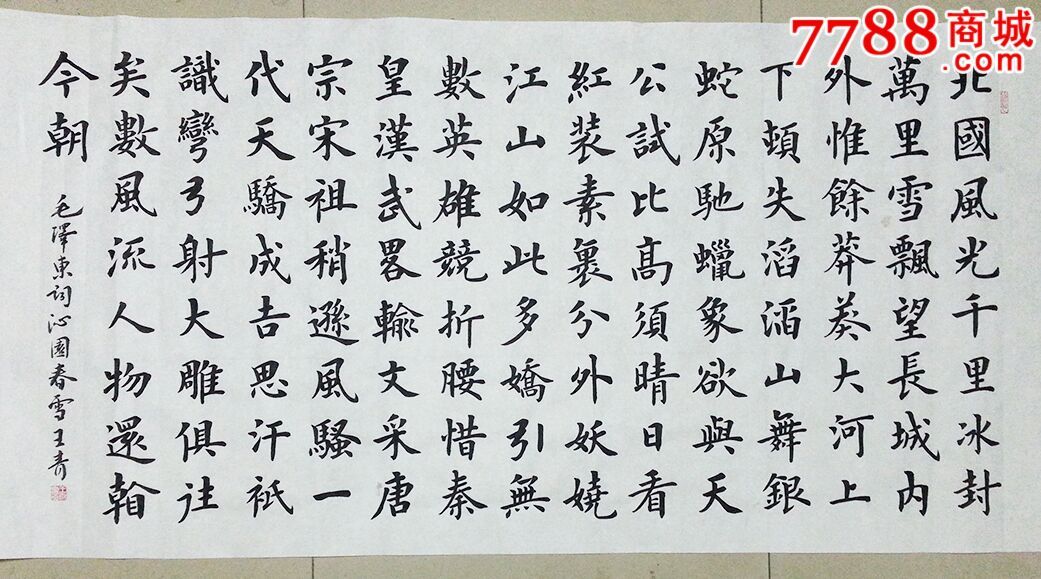 7788商城
.com
北國風光千里冰封
萬里雪飄望長城內
外惟餘莽莽大河上
下頓失滔滔山舞銀
蛇原馳蠟象欲與天
公試比高須晴日看
紅装素裹分外妖嬈
江山如此多嬌引無
數英雄競折腰惜秦
皇漢武畧輸文采唐
宗宋祖稍遜風騷一
代天驕成吉思汗祇
識彎弓射大雕俱往
矣數風流人物還看
今朝
毛澤東詞沁園春雪王青